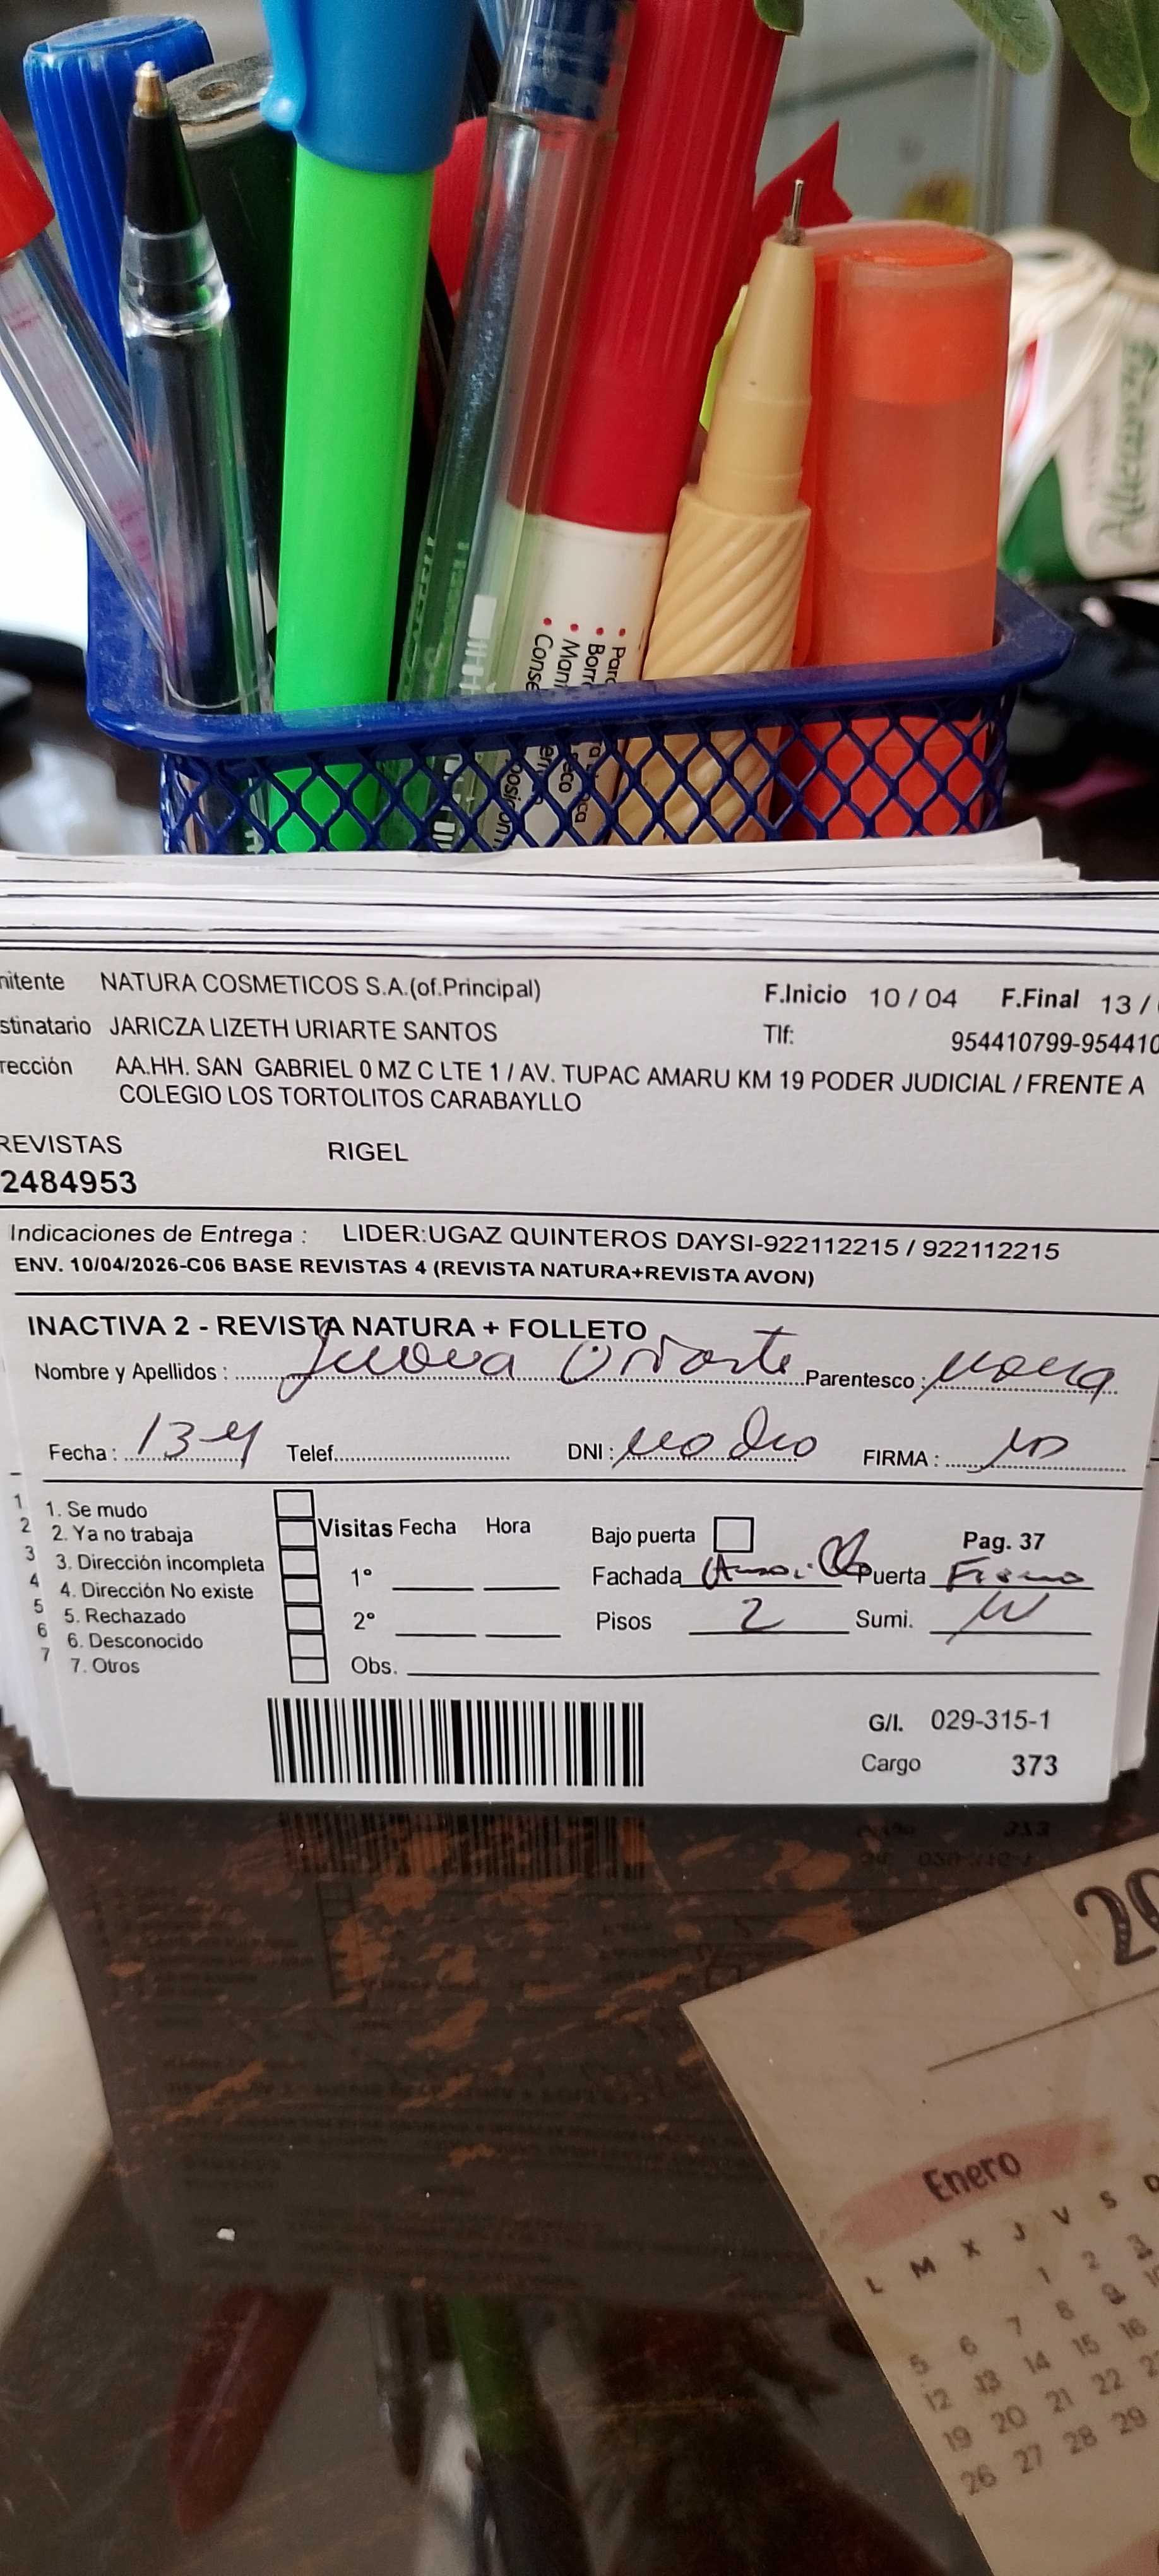 NATURA COSMETICOS S.A.(of.Principal) F.Inicio 10 / 04 F.Final 13 /
JARICZA LIZETH URIARTE SANTOS Tlf: 954410799-954410
AA.HH. SAN GABRIEL 0 MZ C LTE 1 / AV. TUPAC AMARU KM 19 PODER JUDICIAL / FRENTE A
COLEGIO LOS TORTOLITOS CARABAYLLO
REVISTAS RIGEL
2484953
Indicaciones de Entrega : LIDER:UGAZ QUINTEROS DAYSI-922112215 / 922112215
ENV. 10/04/2026-C06 BASE REVISTAS 4 (REVISTA NATURA+REVISTA AVON)
INACTIVA 2 - REVISTA NATURA + FOLLETO
Nombre y Apellidos : Uriarte Parentesco :
Fecha : 13-4 Telef. DNI : no dio FIRMA :
1 1. Se mudo
2 2. Ya no trabaja Visitas Fecha Hora Bajo puerta Pag. 37
3 3. Dirección incompleta 1° Fachada Puerta Fierro
4 4. Dirección No existe
5 5. Rechazado 2° Pisos 2 Sumi.
6 6. Desconocido
7 7. Otros Obs.
G/I. 029-315-1
Cargo 373
Enero
L M X J V S D
1 2 3
5 6 7 8 9 10
12 13 14 15 16
19 20 21 22 23
26 27 28 29